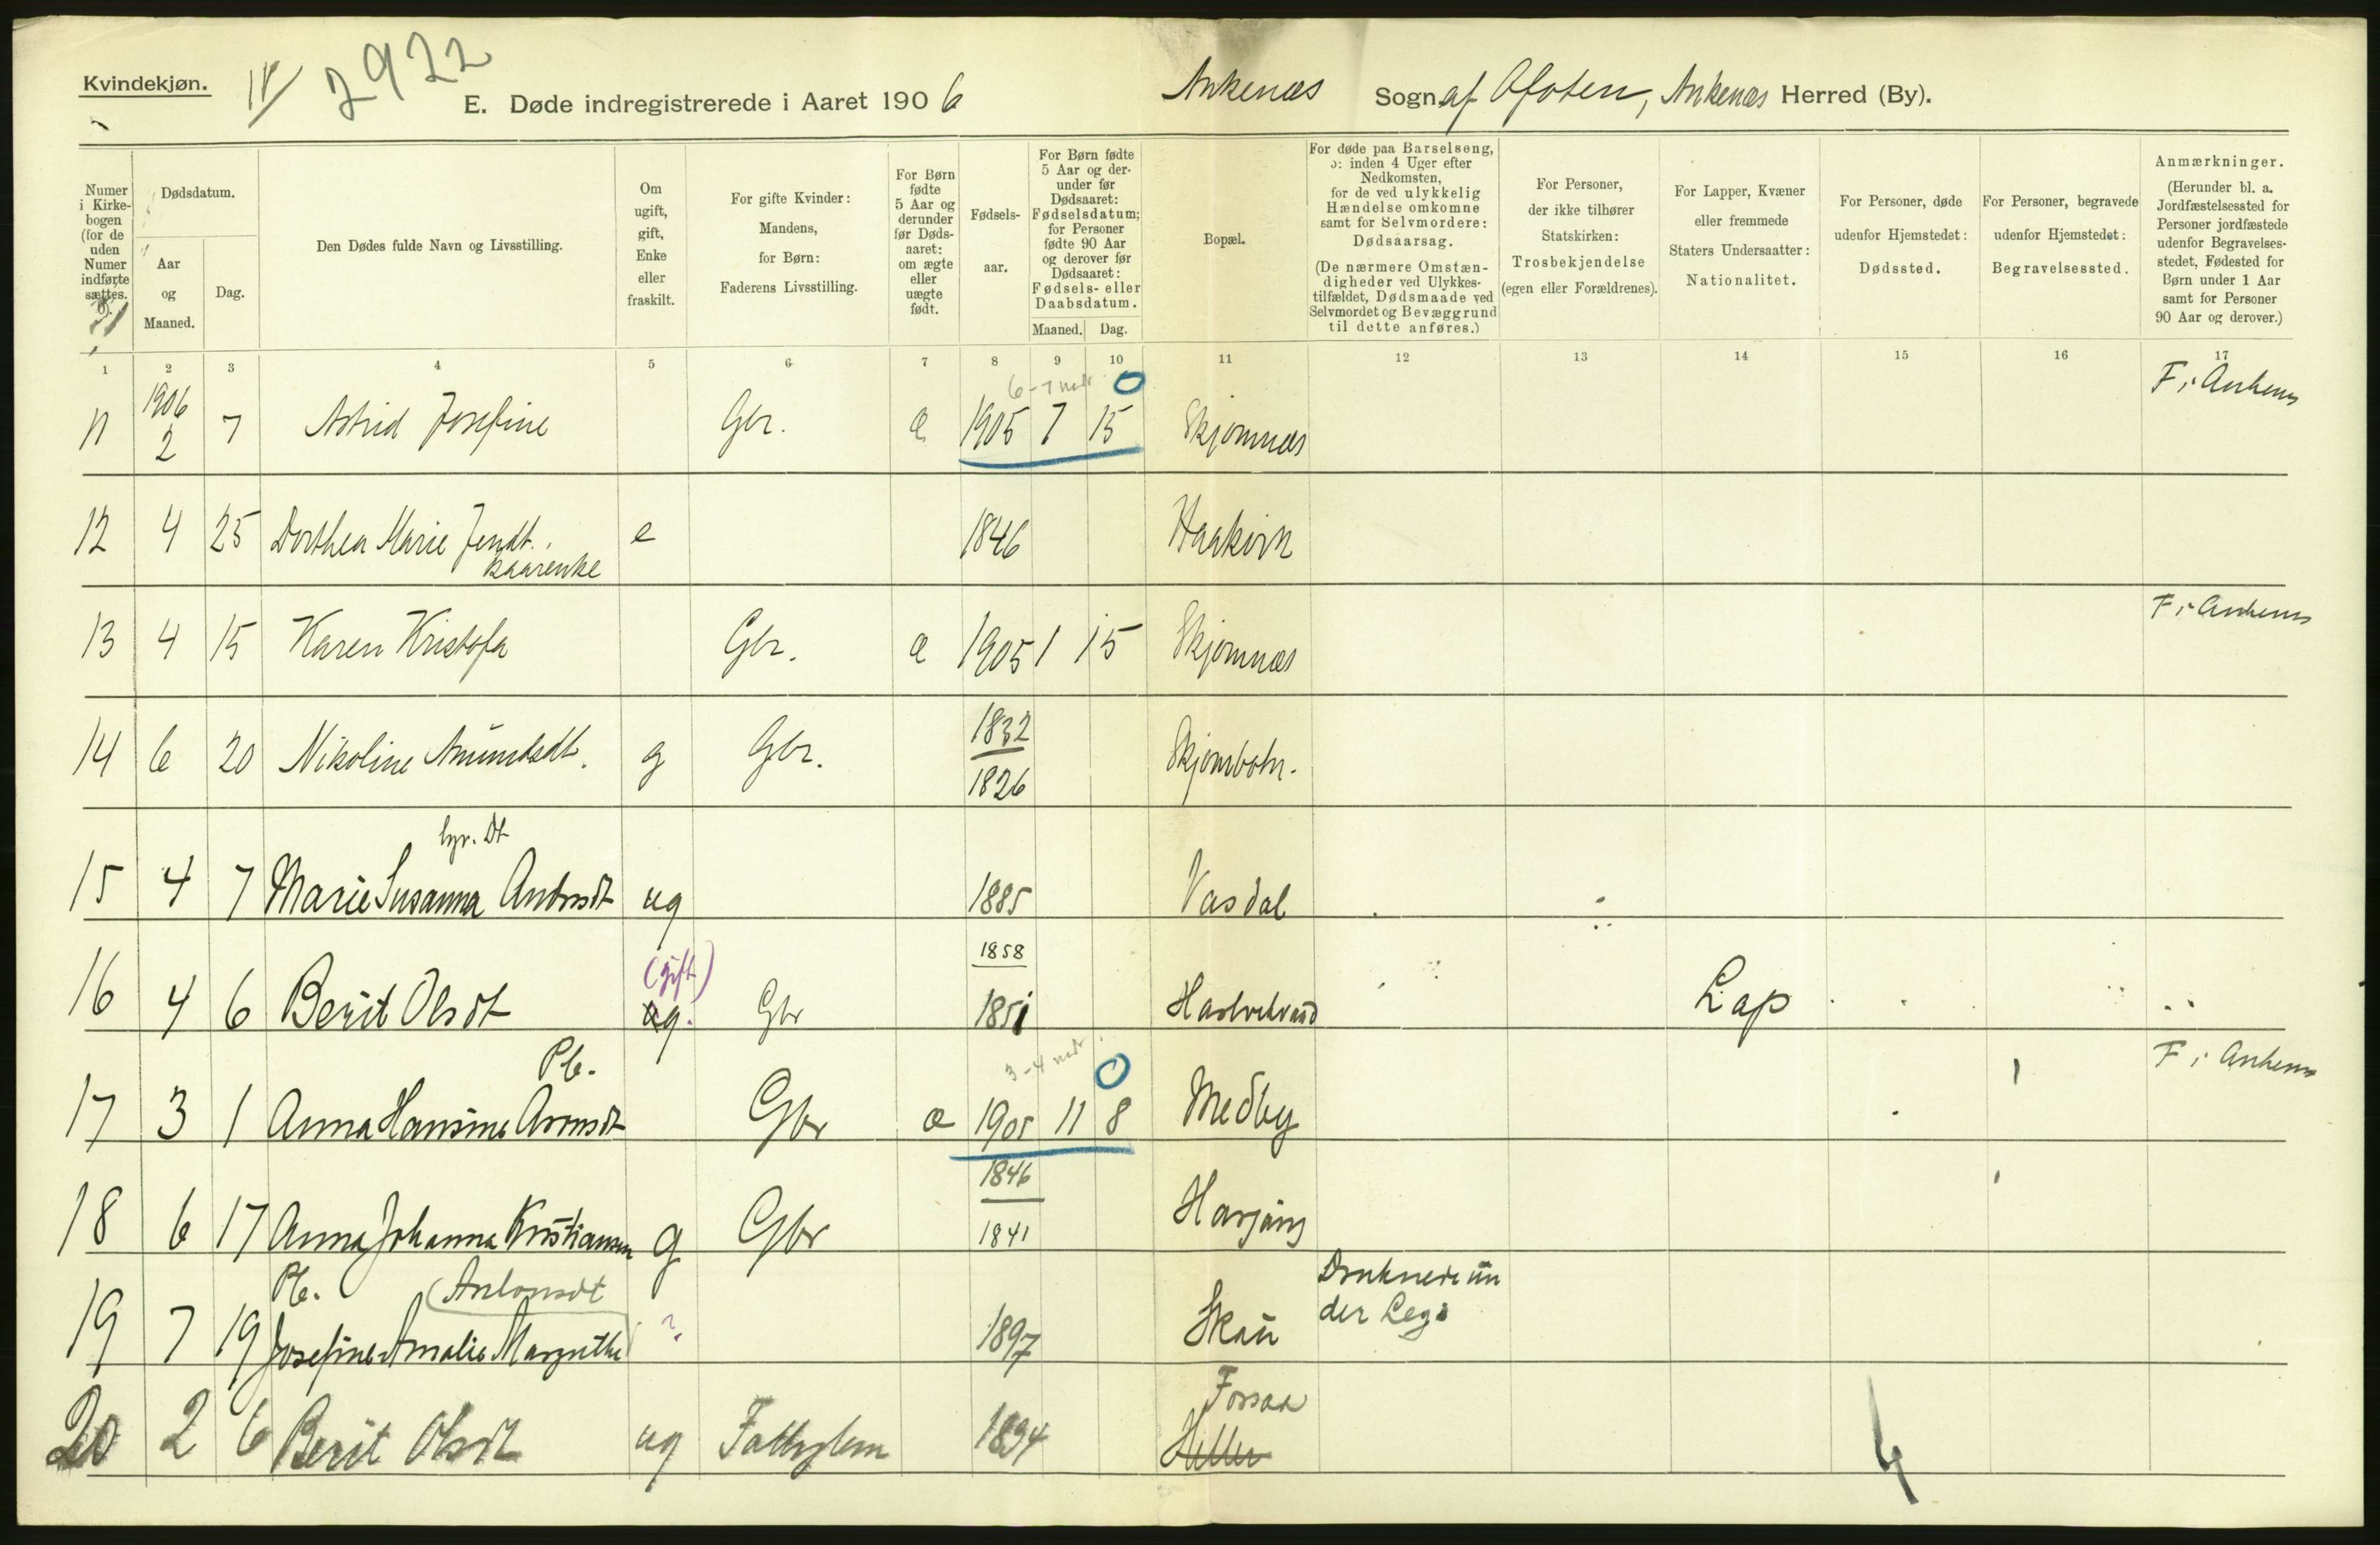 Kvindekjøn.
IV/ 2922
E. Døde indregistrerede i Aaret 1906
Ankenæs Sogn af Ofoten, Ankenæs Herred (By).
Numer i Kirkebogen (for de uden Numer indførte sættes. 0).
Dødsdatum.
Aar og Maaned.
Dag.
Den Dødes fulde Navn og Livsstilling.
Om ugift, gift, Enke eller fraskilt.
For gifte Kvinder: Mandens, for Børn: Faderens Livsstilling.
For Børn fødte 5 Aar og derunder før Dødsaaret: om ægte eller uægte født.
Fødselsaar.
For Børn fødte 5 Aar og derunder før Dødsaaret: Fødselsdatum; for Personer fødte 90 Aar og derover før Dødsaaret: Fødsels- eller Daabsdatum.
Maaned. Dag.
Bopæl.
For døde paa Barselseng, ɔ: inden 4 Uger efter Nedkomsten, for de ved ulykkelig Hændelse omkomne samt for Selvmordere: Dødsaarsag.
(De nærmere Omstændigheder ved Ulykkestilfældet, Dødsmaade ved Selvmordet og Bevæggrund til dette anføres.)
For Personer, der ikke tilhører Statskirken: Trosbekjendelse (egen eller Forældrenes).
For Lapper, Kvæner eller fremmede Staters Undersaatter: Nationalitet.
For Personer, døde udenfor Hjemstedet: Dødssted.
For Personer, begravede udenfor Hjemstedet: Begravelsessted.
Anmærkninger.
(Herunder bl. a. Jordfæstelsessted for Personer jordfæstede udenfor Begravelsesstedet, Fødested for Børn under 1 Aar samt for Personer 90 Aar og derover.)
1 2 3 4 5 6 7 8 9 10 11 12 13 14 15 16 17
6-7 mdr 0
11 1906 2 7 Astrid Josefine Gbr. æ 1905 7 15 Skjomnæs F. i Ankenes
12 4 25 Dorthea Marie Jensdt. Kaarenke e 1846 Haakvik
13 4 15 Karen Kristofa Gbr. æ 1905 1 15 Skjomnæs F. i Ankenes
14 6 20 Nikoline Amundsdt. g Gbr. 1832 1826 Skjombotn.
Gbr. Dt
15 4 7 Marie Susanna Andersdt ug 1885 Vasdal
(gift) 1858
16 4 6 Berit Olsdt ug. Gbr 1851 Lap
Pb. 3-4 mdr. 0
17 3 1 Anna Hansine Arnesdt Gbr æ 1905 11 8 Medby F. i Ankenes
1846
18 6 17 Anna Johanna Kristiansen g Gbr 1841 Herjang
Pb. (Antonsdt
19 7 19 Josefine Amalie Margrethe ? 1897 Skau Druknede under Leg.
Forsaa
20 2 6 Berit Olsdt ug Fattiglem 1834
4